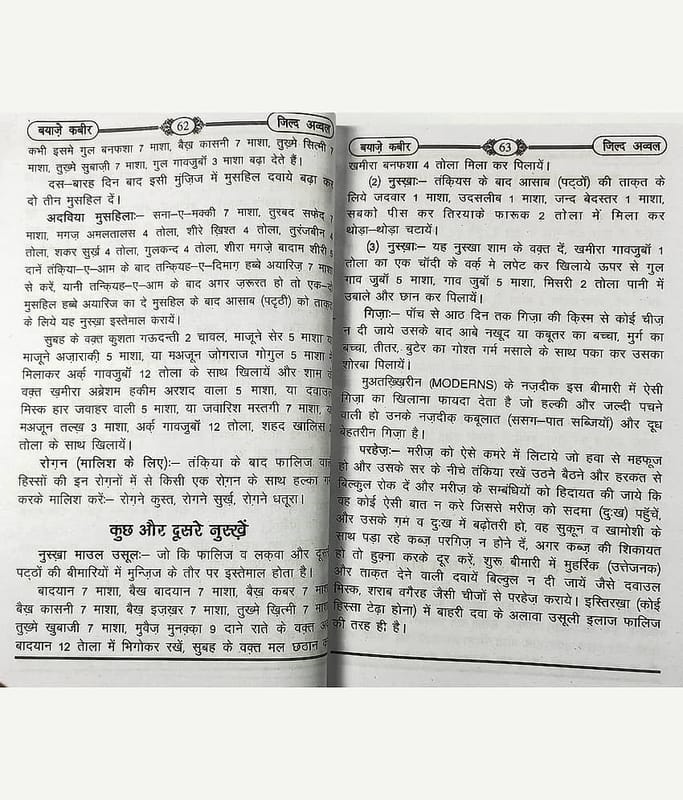 बयाज़े कबीर 62 जिल्द अव्वल
कभी इसमे गुल बनफशा 7 माशा, बैख़ कासनी 7 माशा, तुख़्मे सित्मी 7
माशा, तुख़्मे सुबाज़ी 7 माशा, गुल गावजुबाँ 3 माशा बढ़ा देते हैं।
दस–बारह दिन बाद इसी मुंज़िज में मुसहिल दवाये बढ़ा कर
दो तीन मुसहिल दें।
अदविया मुसहिलाः– सना–ए–मक्की 7 माशा, तुरबद सफेद 7
माशा, मगज़ अमलतालस 4 तोला, शीरे ख़िश्त 4 तोला, तुरंजबीन 4
तोला, शकर सुर्ख़ 4 तोला, गुलकन्द 4 तोला, शीरा मगज़े बादाम शीरी 5
दानें तंकिया–ए–आम के बाद तन्कियह–ए–दिमाग़ हब्बे अयारिज 7 माशा
से करें, यानी तन्कियह–ए–आम के बाद अगर ज़रूरत हो तो एक–दो
मुसहिल हब्बे अयारिज का दे मुसहिल के बाद आसाब (पट्ठी) को ताक़त
के लिये यह नुस्ख़ा इस्तेमाल करायें।
सुबह के वक़्त कुशता गऊदन्ती 2 चावल, माजूने सेर 5 माशा या
माजूने अज़ाराक़ी 5 माशा, या मअजून जोगराज गोगुल 5 माशा में
मिलाकर अर्क़ गावजुबाँ 12 तोला के साथ खिलायें और शाम के
वक़्त खमीरा अब्रेशम हकीम अरशद वाला 5 माशा, या दवाउल
मिस्क हार जवाहर वाली 5 माशा, या जवारिश मस्तगी 7 माशा, या
मअजून तल्ख़ 3 माशा, अर्क़ गावजुबाँ 12 तोला, शहद खालिस 2
तोला के साथ खिलायें।
रोग़न (मालिश के लिए):– तंकिया के बाद फालिज वाले
हिस्सों की इन रोग़नों में से किसी एक रोग़न के साथ हल्का गर्म
करके मालिश करेंः– रोग़ने कुस्त, रोग़ने सुर्ख़, रोग़ने धतूरा।
कुछ और दूसरे नुस्ख़ें
नुस्ख़ा माउल उसूलः– जो कि फालिज व लक़वा और दूसरी
पट्ठों की बीमारियों में मुन्ज़िज के तौर पर इस्तेमाल होता है।
बादयान 7 माशा, बैख़ बादयान 7 माशा, बैख़ कबर 7 माशा
बैख़ कासनी 7 माशा, बैख़ इज़ख़र 7 माशा, तुख़्मे ख़ित्मी 7 माशा
तुख़्मे खुबाजी 7 माशा, मुवैज़ मुनक़्क़ा 9 दाने राते के वक़्त अर्क़
बादयान 12 तेाला में भिगोकर रखें, सुबह के वक़्त मल छठान कर
बयाज़े कबीर 63 जिल्द अव्वल
खमीरा बनफशा 4 तोला मिला कर पिलायें।
(2) नुस्ख़ाः– तंक़ियस के बाद आसाब (पट्ठों) की ताक़त के
लिये जदवार 1 माशा, उदसलीब 1 माशा, जन्द बेदस्तर 1 माशा,
सबको पीस कर तिरयाके फारूक 2 तोला में मिला कर
थोड़ा–थोड़ा चटायें।
(3) नुस्ख़ाः– यह नुस्खा शाम के वक़्त दें, खमीरा गावजुबाँ 1
तोला का एक चाँदी के वर्क़ मे लपेट कर खिलाये ऊपर से गुल
गाव जुबाँ 5 माशा, गाव जुबाँ 5 माशा, मिसरी 2 तोला पानी में
उबाले और छान कर पिलायें।
गिज़ाः– पाँच से आठ दिन तक गिज़ा की क़िस्म से कोई चीज़
न दी जाये उसके बाद आबे नखूद या कबूतर का बच्चा, मुर्ग का
बच्चा, तीतर, बुटेर का गोश्त गर्म मसाले के साथ पका कर उसका
शोरबा पिलायें।
मुअतख़्ख़िरीन (MODERNS) के नज़दीक इस बीमारी में ऐसी
गिज़ा का खिलाना फायदा देता है जो हल्की और जल्दी पचने
वाली हो उनके नज़दीक़ कबूलात (ससग–पात सब्जियों) और दूध
बेहतरीन गिज़ा है।
परहेज़ः– मरीज़ को ऐसे कमरे में लिटाये जो हवा से महफूज़
हो और उसके सर के नीचे तंकिया रखें उठने बैठने और हरकत से
बिल्कुल रोक दें और मरीज़ के सम्बंधियों को हिदायत की जाये कि
वह कोई ऐसी बात न करे जिससे मरीज़ को सदमा (दुःख) पहुँचें,
और उसके ग़म व दुःख में बढ़ोतरी हो, वह सुकून व खामोशी के
साथ पड़ा रहे कब्ज़ परगिज़ न होने दें, अगर कब्ज़ की शिकायत
हो तो हुक़्ना करके दूर करें, शुरू बीमारी में मुहर्रिक (उत्तेजनक)
और ताक़त देने वाली दवायें बिल्कुल न दी जायें जैसे दवाउल
मिस्क, शराब वगैरह जैसी चीजों से परहेज़ कराये। इस्तिरख़ा (कोई
हिस्सा टेढ़ा होना) में बाहरी दवा के अलावा उसूली इलाज फालिज
की तरह ही है।